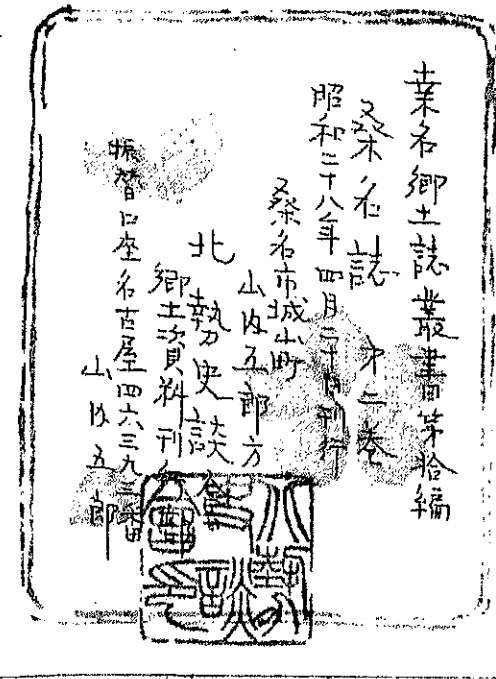 桒名郷土誌叢書第拾編
桒名誌 第二巻
昭和二十八年四月二十日刊行
桒名市城山町
山内五郎方
北勢史談會
郷土資料刊行部
振替口座名古屋四六三九三番
山内五郎